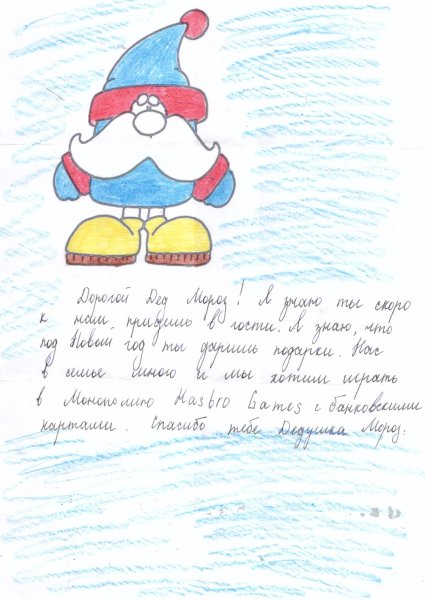 Дорогой Дед Мороз! Я знаю ты скоро
к нам придешь в гости. Я знаю, что
под Новый год ты даришь подарки. Нас
в семье много и мы хотим играть
в Монополию Hasbro Games с банковскими
картами. Спасибо тебе Дедушка Мороз.